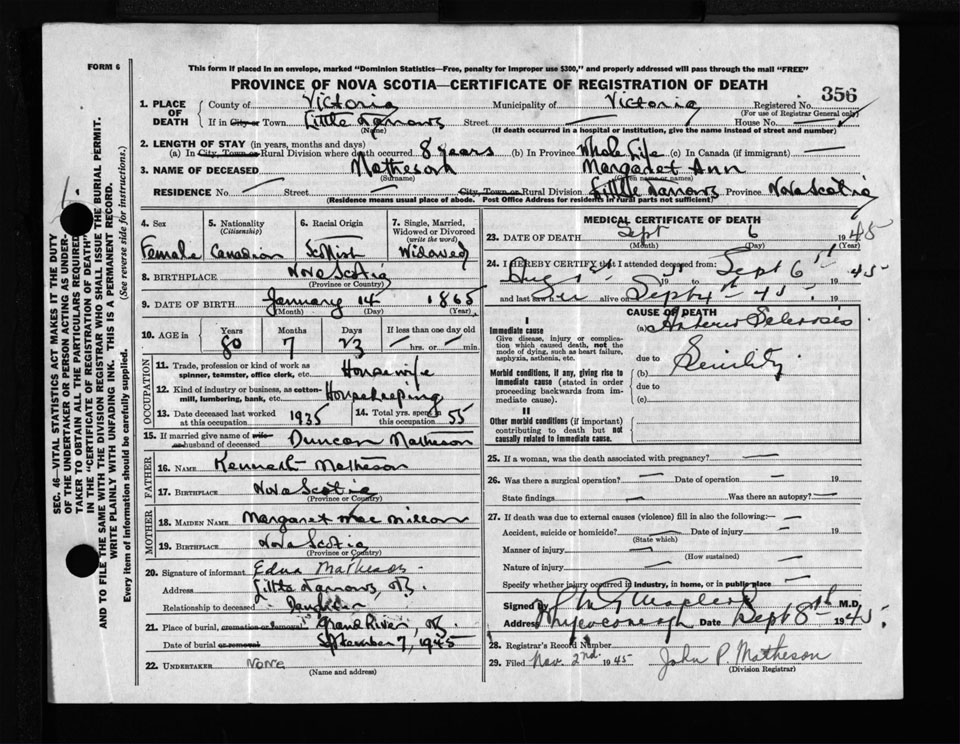 FORM 6
This form if placed in an envelope, marked "Dominion Statistics—Free, penalty for improper use $300," and properly addressed will pass through the mail "FREE"
PROVINCE OF NOVA SCOTIA—CERTIFICATE OF REGISTRATION OF DEATH
356
1. PLACE OF DEATH { County of Victoria Municipality of Victoria Registered No.
(For use of Registrar General only)
If in City or Town Little Narrows Street — House No. —
(Name) (If death occurred in a hospital or institution, give the name instead of street and number)
2. LENGTH OF STAY (in years, months and days)
(a) In City, Town or Rural Division where death occurred 8 years (b) In Province Whole Life (c) In Canada (if immigrant) —
3. NAME OF DECEASED Matheson Margaret Ann
(Surname) (Given name or names)
RESIDENCE No — Street — City, Town or Rural Division Little Narrows Province Nova Scotia
(Residence means usual place of abode. Post Office Address for residents in rural parts not sufficient)
4. Sex
Female
5. Nationality
(Citizenship)
Canadian
6. Racial Origin
Scottish
7. Single, Married, Widowed or Divorced
(write the word)
Widowed
8. BIRTHPLACE Nova Scotia
(Province or Country)
9. DATE OF BIRTH January 14 1865
(Month) (Day) (Year)
10. AGE in Years Months Days If less than one day old
80 7 23 — hrs. or — min.
OCCUPATION
11. Trade, profession or kind of work as spinner, teamster, office clerk, etc. Housewife
12. Kind of industry or business, as cotton-mill, lumbering, bank, etc. Housekeeping
13. Date deceased last worked at this occupation 1935
14. Total yrs. spent in this occupation 55
15. If married give name of wife or husband of deceased Duncan Matheson
FATHER
16. NAME Kenneth Matheson
17. BIRTHPLACE Nova Scotia
(Province or Country)
MOTHER
18. MAIDEN NAME Margaret Mac Millan
19. BIRTHPLACE Nova Scotia
(Province or Country)
20. Signature of informant Edna Matheson
Address Little Narrows,
Relationship to deceased Daughter
21. Place of burial, cremation or removal Grand River,
Date of burial or removal September 7, 1945
22. UNDERTAKER None
(Name and address)
MEDICAL CERTIFICATE OF DEATH
23. DATE OF DEATH Sept 6 1945
(Month) (Day) (Year)
24. I HEREBY CERTIFY that I attended deceased from:
Aug 19 to Sept 6th 1945
and last saw her alive on Sept 4th 45. 19
CAUSE OF DEATH
I
Immediate cause
Give disease, injury or complication which caused death, not the mode of dying, such as heart failure, asphyxia, asthenia, etc.
(a) Arterio Sclerosis
due to
Morbid conditions, if any, giving rise to immediate cause (stated in order proceeding backwards from immediate cause).
(b) Senility
due to
(c)
II
Other morbid conditions (if important) contributing to death but not causally related to immediate cause.
25. If a woman, was the death associated with pregnancy? —
26. Was there a surgical operation? — Date of operation — 19
State findings — Was there an autopsy? —
27. If death was due to external causes (violence) fill in also the following:—
Accident, suicide or homicide? — Date of injury — 19
(State which)
Manner of injury —
(How sustained)
Nature of injury —
Specify whether injury occurred in industry, in home, or in public place —
Signed by MacLeod M.D.
Address Whycocomagh Date Sept 8th 1945.
28. Registrar's Record Number
29. Filed Nov. 2nd. 1945 John P. Matheson
(Division Registrar)
SEC. 46—VITAL STATISTICS ACT MAKES IT THE DUTY
OF THE UNDERTAKER OR PERSON ACTING AS UNDER-
TAKER TO OBTAIN ALL THE PARTICULARS REQUIRED
IN THE "CERTIFICATE OF REGISTRATION OF DEATH"
AND TO FILE THE SAME WITH THE DIVISION REGISTRAR WHO SHALL ISSUE THE BURIAL PERMIT.
WRITE PLAINLY WITH UNFADING INK. THIS IS A PERMANENT RECORD.
Every item of Information should be carefully supplied. (See reverse side for instructions.)